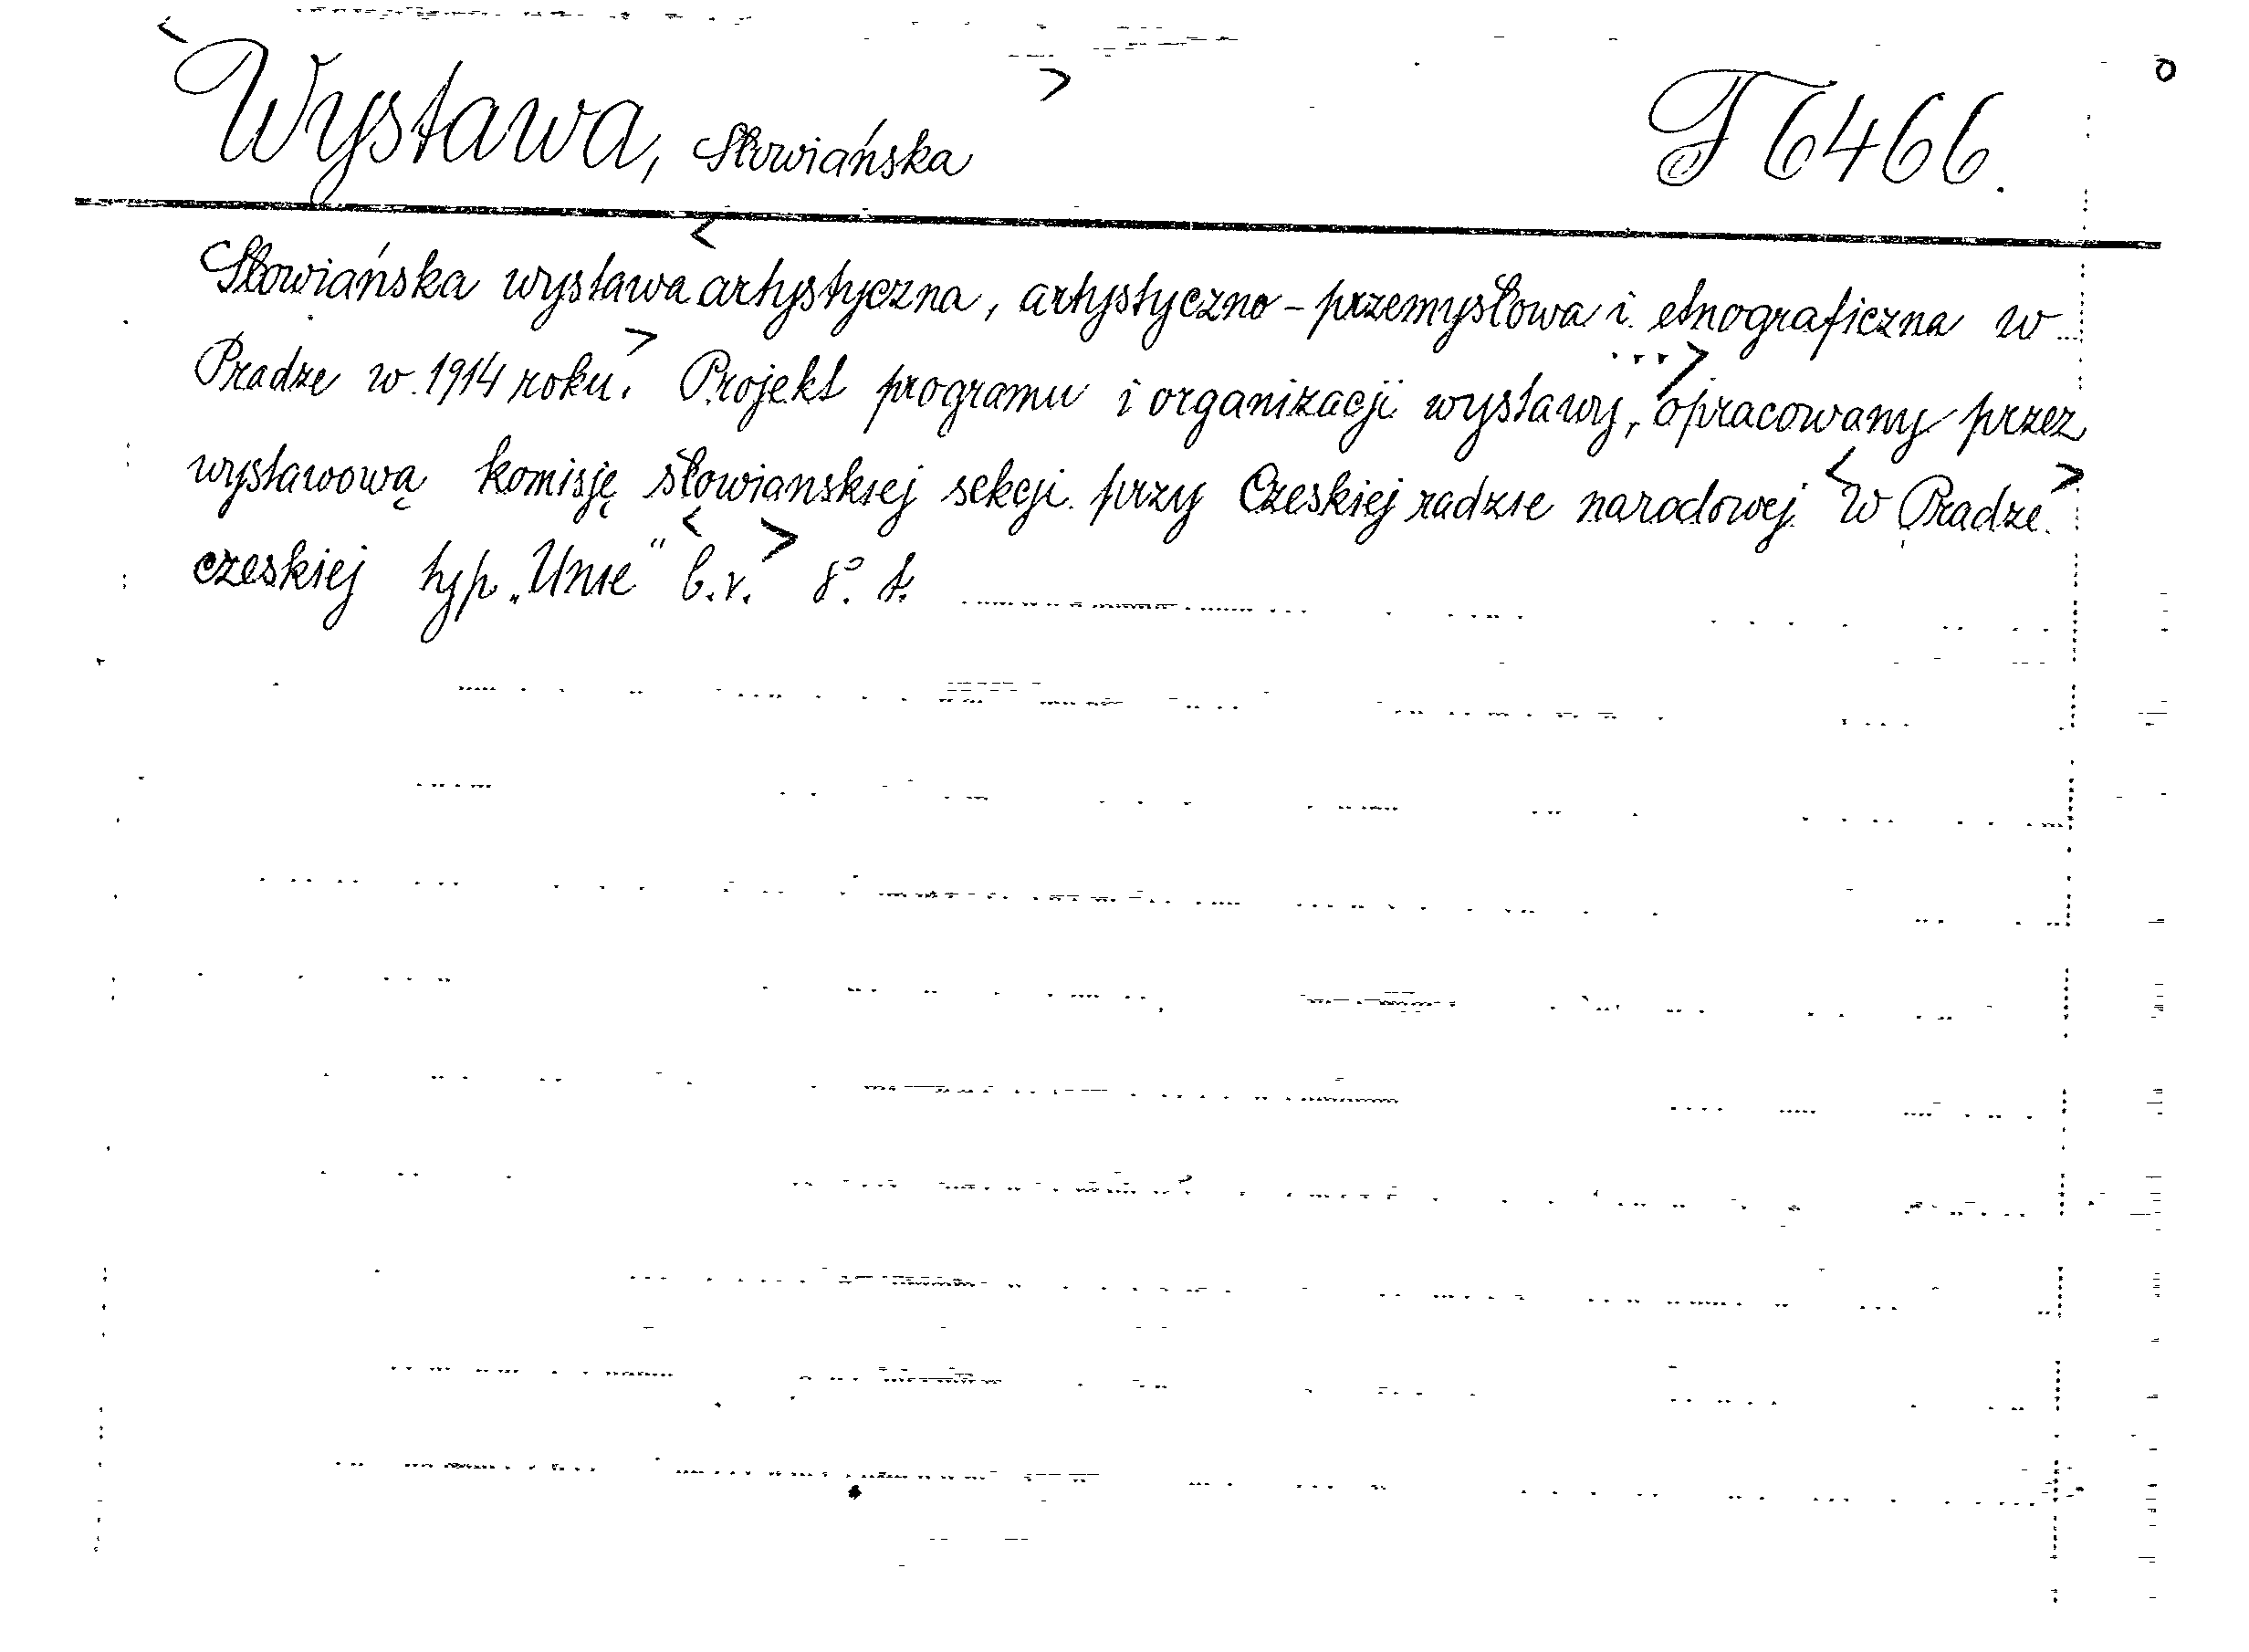 Wystawa, Słowiańska T 6466.
Słowiańska wystawa artystyczna, artystyczno-przemysłowa i etnograficzna w
Pradze w 1914 roku. Projekt programu i organizacji wystawy, opracowany przez
wystawową komisję słowianskiej sekcji przy Czeskiej radzie narodowej. W Pradze
czeskiej typ. „Unie" b.r. 8°.